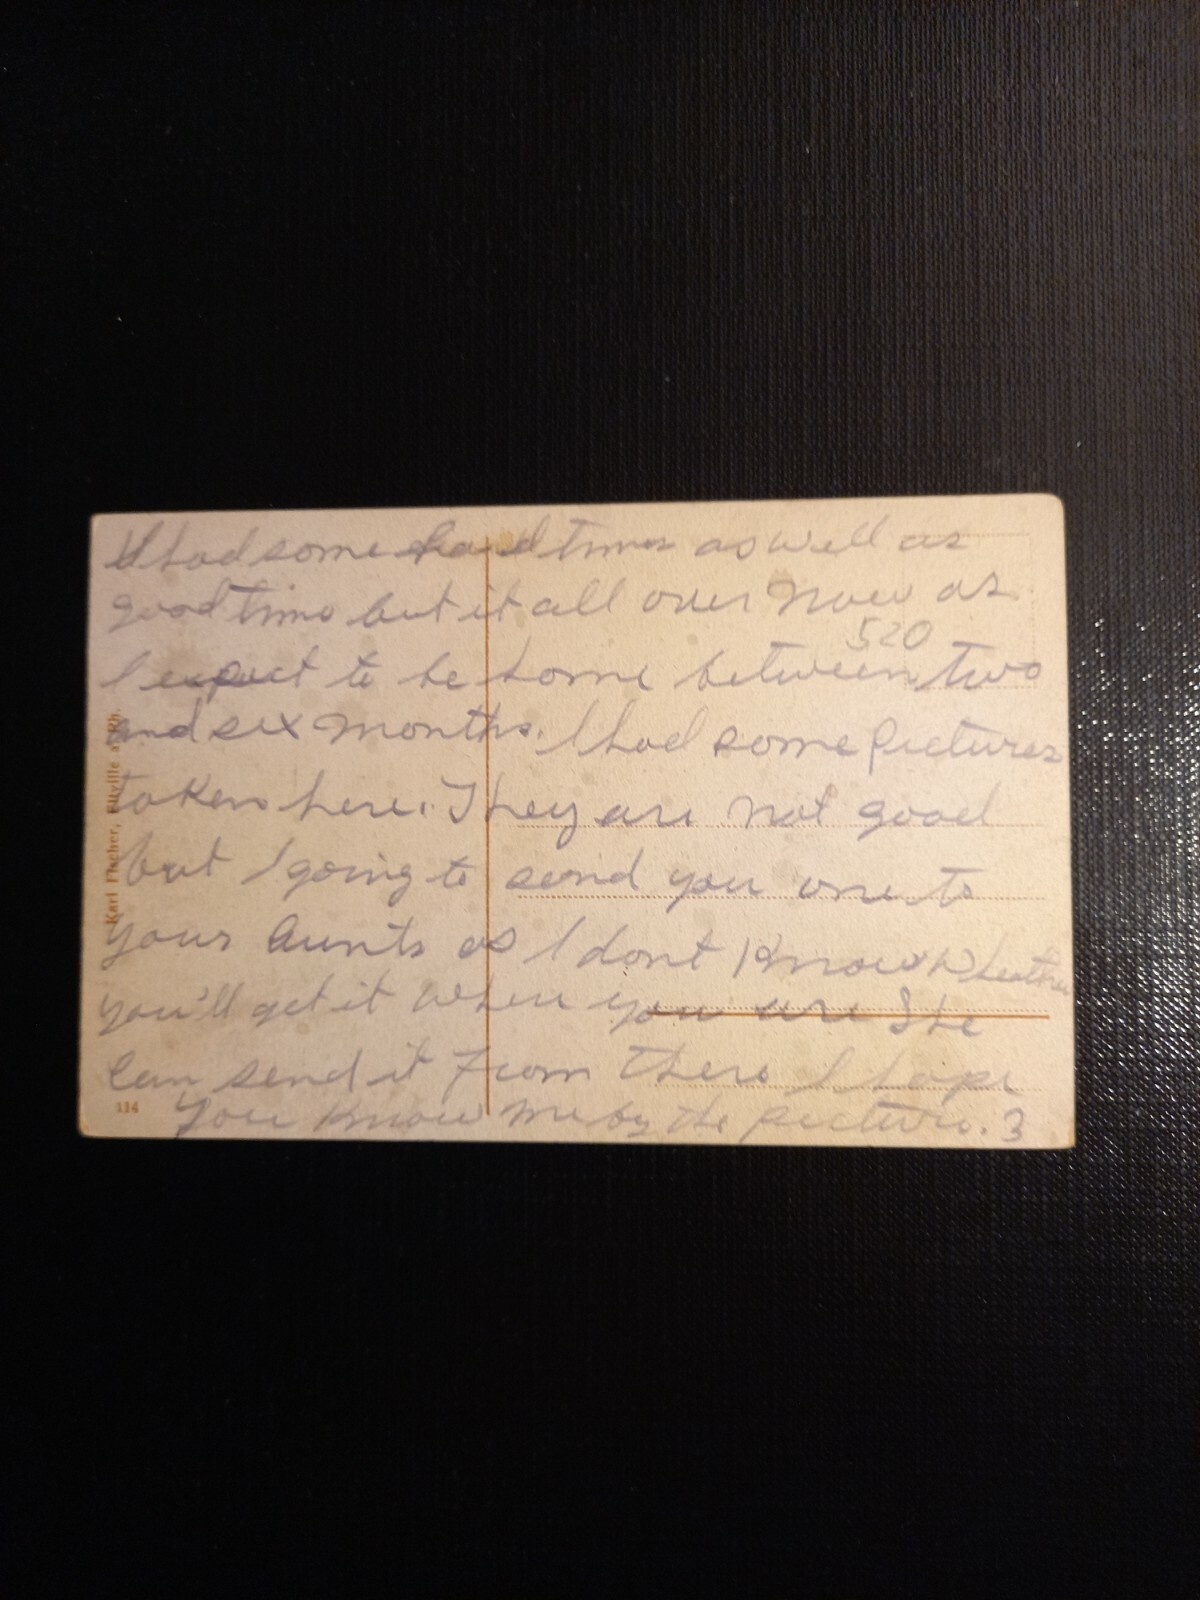 I had some hard times as well as
good time but it all over now as
520
I expect to be home between two
and six months. I had some pictures
taken here. They are not good
but I going to send you one to
your Aunts as I dont know wheather
you'll get it when you are She
Can send it from there I hope
you know me by the picture. 3
Karl Fischer, Eltville a. Rh.
114